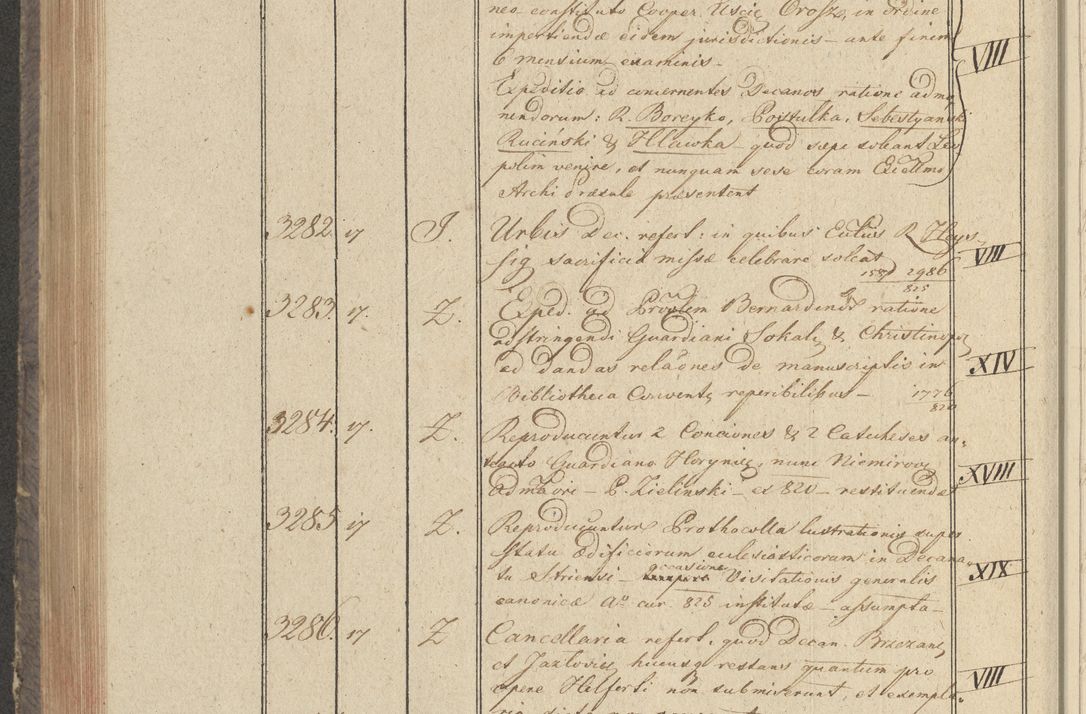 neo constituto Cooper. Uscie, Orosz, in ordine
impertiendæ eidem jurisdictionis – ante finem
6 mensium examinis – VIII
Expeditio ad concernentes Decanos ratione admo
nendorum: R. Boreyko, Postulka, Sebestyanski
Ruciński & Hlawka – quod sæpe soleant Leo
polim venire, et nunquam sese coram Excellmo
Archi Præsule præsentent
3282 17 J. Urbis Dec. refert: in quibus Ecclüs R. Heys
sig sacrificia missæ celebrare soleat VIII
1587 2986
825
3283. 17. Z. Exped. ad Provlem Bernardinor ratione
adstringendi Guardiani Sokal, & Christinop,
ad dandas relaões de manuscriptis in XIV
Bibliotheca Convent, reperibilibus – 1776
820
3284. 17. Z. Reproducuntur 2 Conciones & 2 Catecheses an,
Guardiano Horyniec, nunc Niemirov, XVIII
P. Zielinski – ex 820 – restituendæ
3285 17 Z. Reproducuntur Prothocolla lustrationis super
statu ædificiorum ecclesiasticorum in Decana,
tu Striensi – occasione Visitationis generalis XIX
canonicæ Ao cur. 825 institutæ – assumpta –
3286. 17 Z Cancellaria refert. quod Decan. Brzezan,
et Jazlovic, hucusq restans quantum pro
opere Helferti nõn submiserunt, et exempla VIII